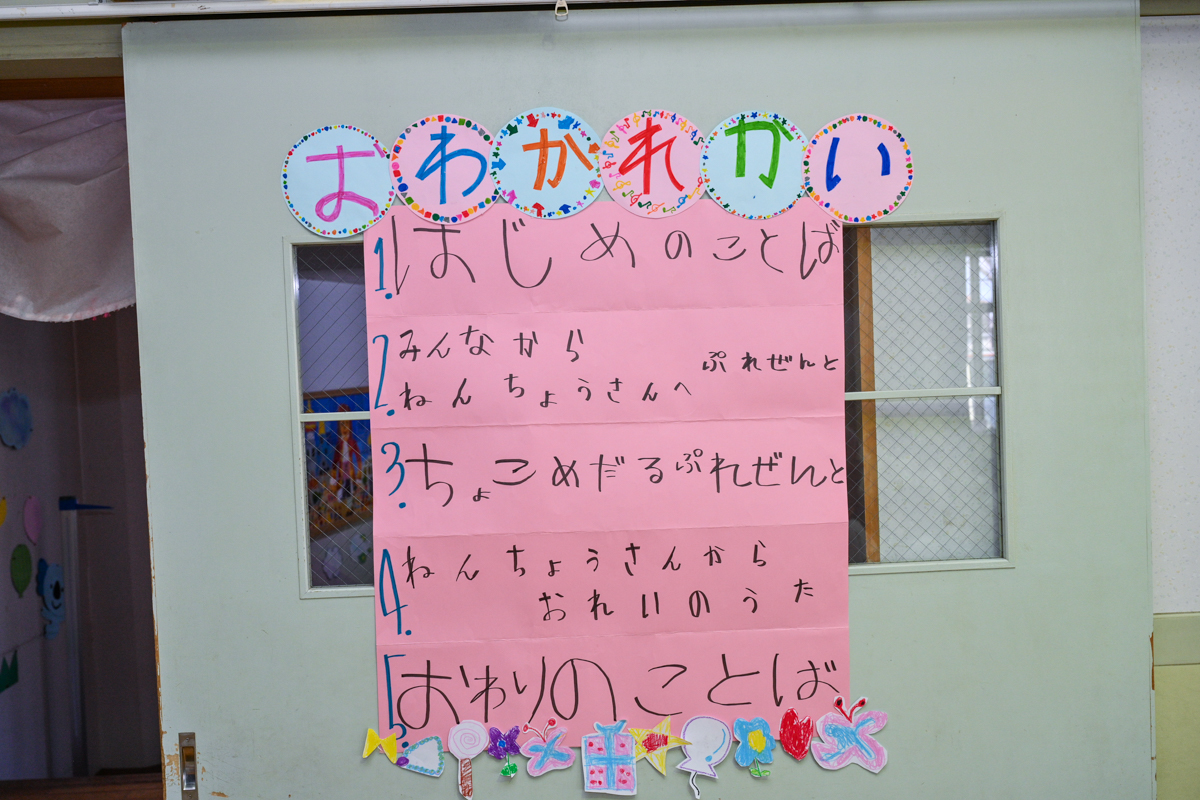 おわかれかい
1. はじめのことば
2. みんなから
ねんちょうさんへ ぷれぜんと
3. ちょこめだるぷれぜんと
4. ねんちょうさんから
おれいのうた
5. おわりのことば